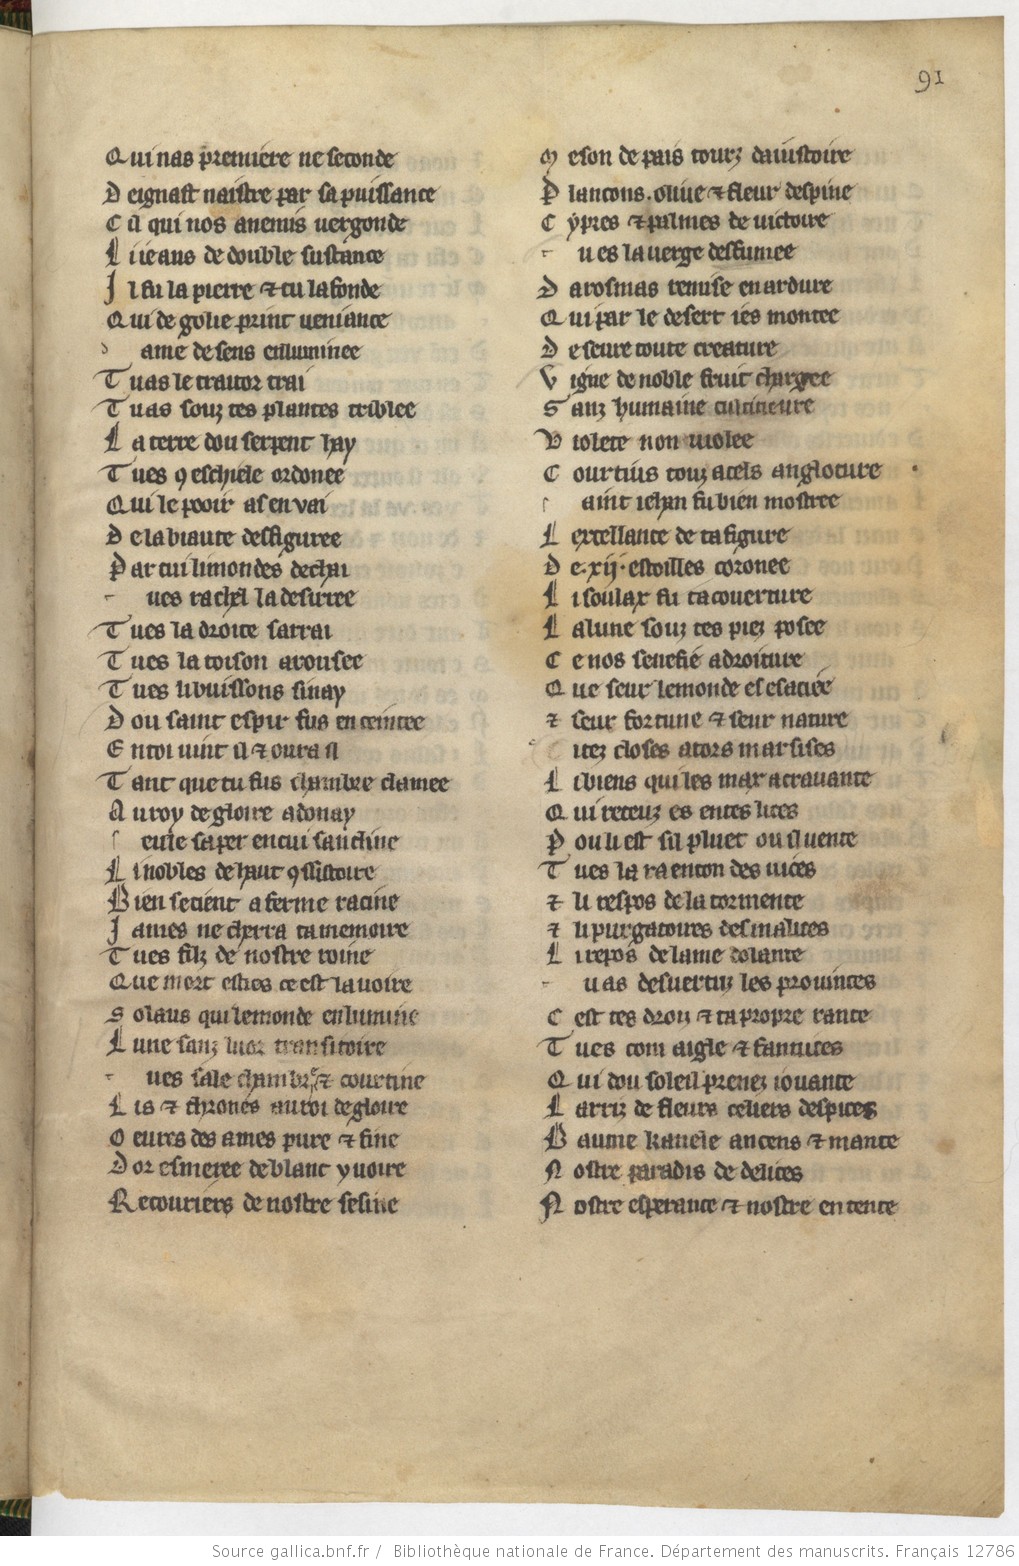 91
Qui nas premiere ne seconde
Deignast naistre par sa puissance
Cil qui nos anemis uergonde
Li ieaus de double sustance
Il fu la pierre ⁊ tu la fonde
Qui de golie print ueniance
d ame de sens enluminee
Tu as le traitor trai
Tu as souz tes plantes triblee
La terre dou serpent hay
Tu es ꝯ eschiele ordenee
Qui le pooir as enuai
De la biaute desfiguree
Par cui li mondes dechai
ues rachel la desirree
Tu es la droite sarrai
Tu es la toison arousee
Tu es li buissons sinay
Dou saint espir fus enceintee
En toi uint il ⁊ oura il
Tant que tu fus chambre clamee
Au roy de gloire adonay
l en cui saucline
Li nobles de haut ꝯsistoire
Bien se tient a ferme racine
Iames ne cherra ta memoire
Tu es filz de nostre roine
Que mort esties ce est la uoire
Solaus qui le monde enlumine
Lune sanz luor transitoire
ues sale chambre ⁊ courtine
Lis ⁊ thrones au roi de gloire
Oeures des ames pure ⁊ fine
Dor esmeree de blanc yuoire
Recouriers de nostre sesine
Meson de pais tourz daiustoire
Plancons. oliue ⁊ fleur despine
Cypres ⁊ palmes de uictoire
ues la uerge desfumee
Darosmas remise en ardure
Qui par le desert ies montee
De seure toute creature
Vigne de noble fruit chargee
Sanz humaine cultiueure
Violete non uiolee
Courtius touz acels angloture
aint iehan fu bien mostree
Lexcellance de ta figure
De .xij. estoilles coronee
Li soulax fu ta couerture
La lune souz tes piez posee
Ce nos senefie a droiture
Que seur le monde es esaciee
⁊ seur fortune ⁊ seur nature
itez closes a tors marsises
Li biens qui les max acrauante
Qui receuz es entes lices
Pou li est sil pluet ou il uente
Tu es la raencon des uices
⁊ li respos de la tormente
⁊ li purgatoires des malices
Li repos de lame dolante
u as des uertuz les prouinces
Cest tes droiz ⁊ ta propre rante
Tu es com aigle ⁊ fannices
Qui dou soleil prenez iouante
Larriz de fleurs celiers despices
Baume kanele ancens ⁊ mante
Nostre paradis de delices
Nostre esperance ⁊ nostre entente
Source gallica.bnf.fr / Bibliothèque nationale de France. Département des manuscrits. Français 12786